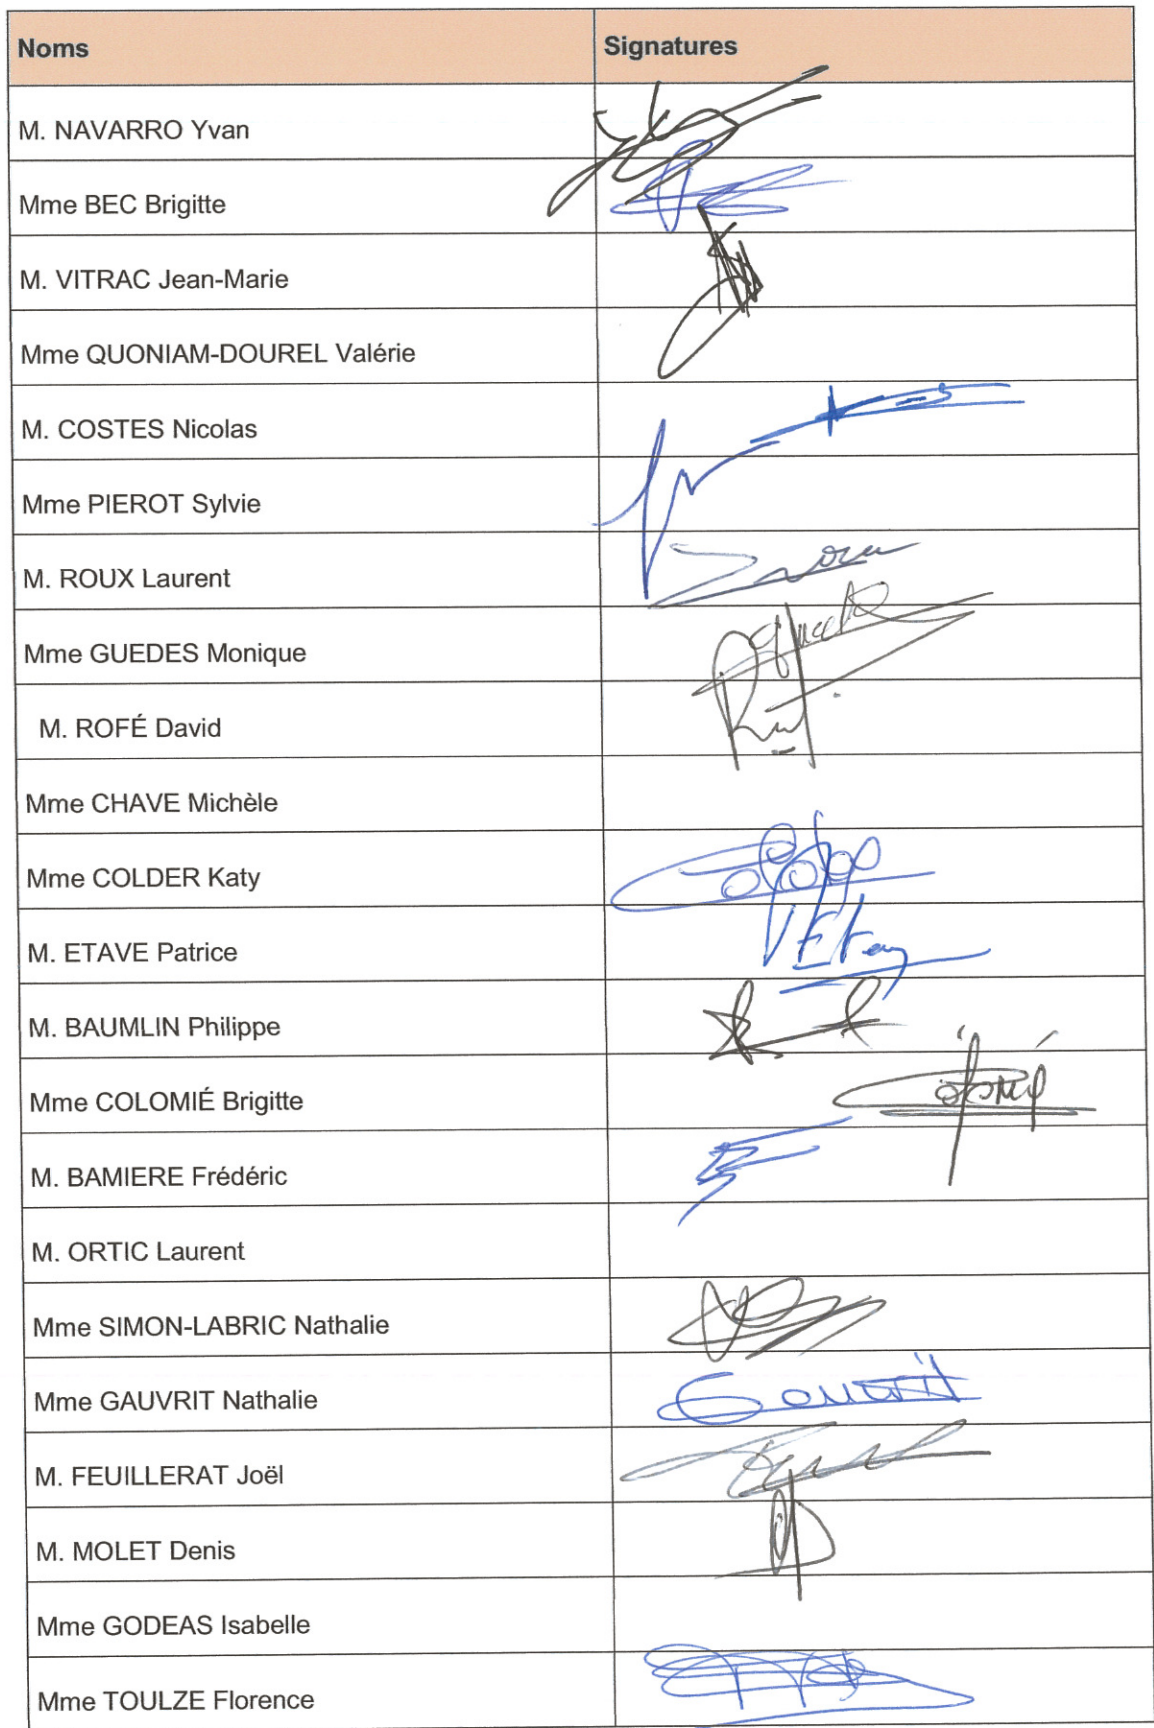 Noms Signatures
M. NAVARRO Yvan
Mme BEC Brigitte
M. VITRAC Jean-Marie
Mme QUONIAM-DOUREL Valérie
M. COSTES Nicolas
Mme PIEROT Sylvie
M. ROUX Laurent
Mme GUEDES Monique
M. ROFÉ David
Mme CHAVE Michèle
Mme COLDER Katy
M. ETAVE Patrice
M. BAUMLIN Philippe
Mme COLOMIÉ Brigitte
M. BAMIERE Frédéric
M. ORTIC Laurent
Mme SIMON-LABRIC Nathalie
Mme GAUVRIT Nathalie Gauvrit
M. FEUILLERAT Joël
M. MOLET Denis
Mme GODEAS Isabelle
Mme TOULZE Florence